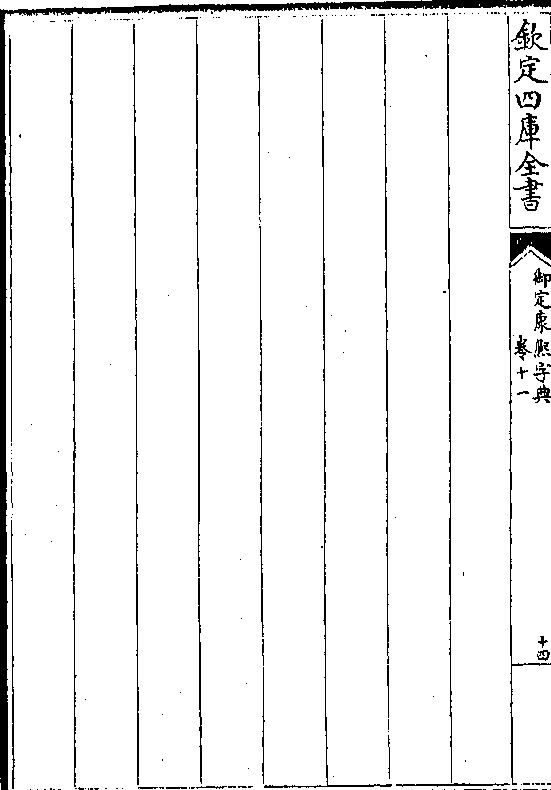 欽定四庫全書
御定康熙字典
卷十一
十四